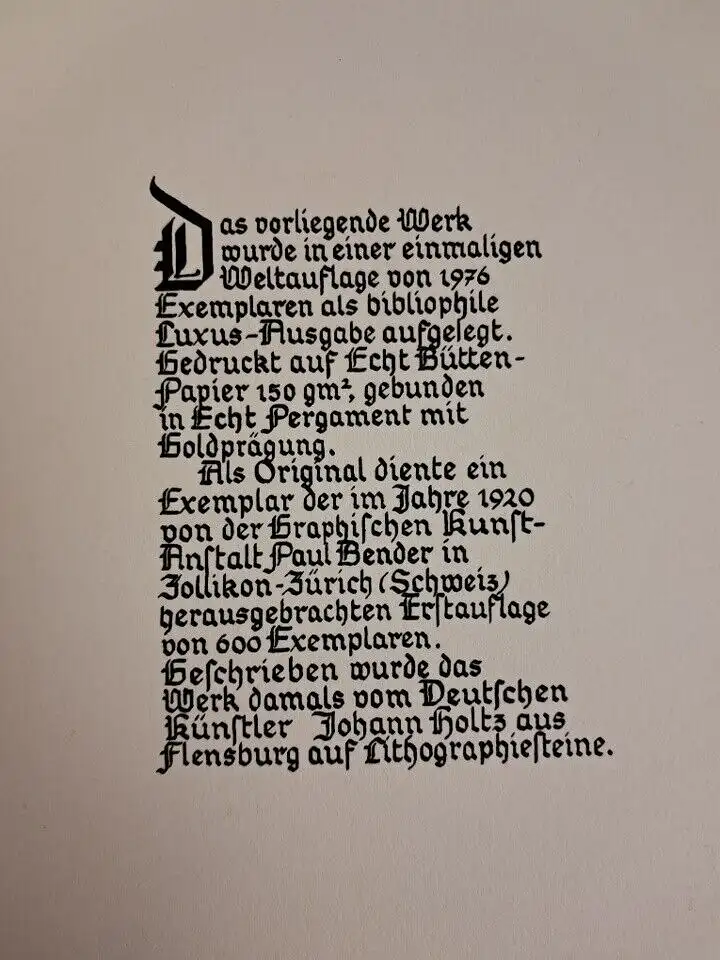 Das vorliegende Werk
wurde in einer einmaligen
Weltauflage von 1976
Exemplaren als bibliophile
Luxus-Ausgabe aufgelegt.
Gedruckt auf Echt Bütten-
Papier 150 gm², gebunden
in Echt Pergament mit
Goldprägung.
Als Original diente ein
Exemplar der im Jahre 1920
von der Graphiſchen Kunſt-
Anſtalt Paul Bender in
Zollikon-Zürich (Schweiz)
herausgebrachten Erſtauflage
von 600 Exemplaren.
Geſchrieben wurde das
Werk damals vom Deutſchen
Künſtler Johann Holtz aus
Flensburg auf Lithographieſteine.